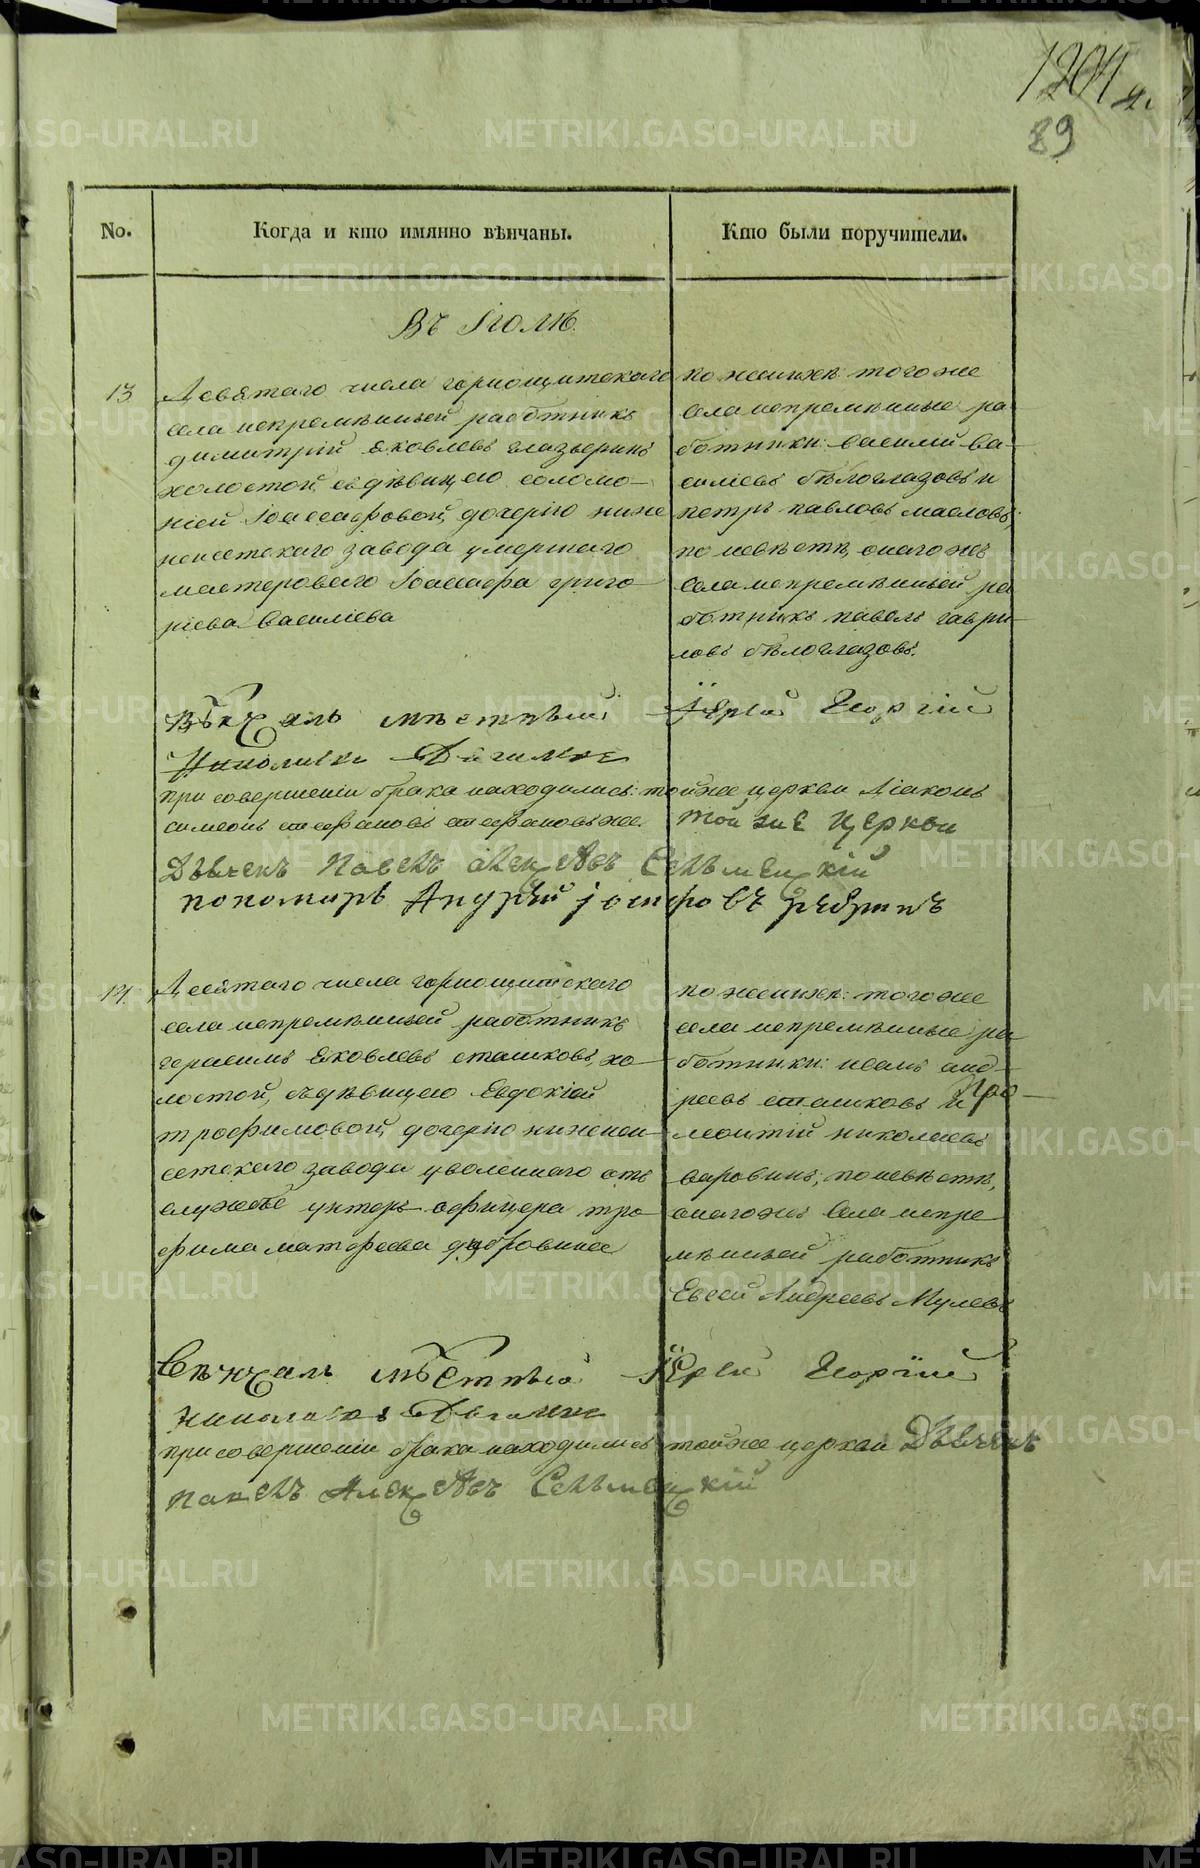 1204
89
No.
Когда и кто имянно вѣнчаны.
Кто были поручители.
Въ Іюлѣ.
13
Девятаго числа горнощитскаго
села непремѣнный работникъ
димитрій Яковлевъ глазыринъ
холостой, съ дѣвицею соломо-
ніей Іоасафовой, дочерію ниже
исетскаго завода умершаго
мастероваго Іоасафа григо-
ріева Василіева
по женихѣ: того же
села непремѣнные ра-
ботники: василій Ва-
силіевъ бѣлоглазовъ и
петръ павловъ масловъ;
по невѣстѣ, онаго же
села непремѣнный ра-
ботникъ павелъ гаври-
ловъ бѣлоглазовъ.
Вѣнчалъ мѣстный Іерей Георгій
Николаевъ
при совершеніи брака находились: тойже церкви Діаконъ
симеонъ стефановъ стефановъ же. той же Церкви
Дьячекъ Павелъ Алексѣевъ Сельменскій
пономарь Андрей Іосифовъ
14.
Десятаго числа горнощитскаго
села непремѣнный работникъ
герасимъ Яковлевъ сташковъ, хо-
лостой, съ дѣвицею Евдокіей
трофимовой, дочерію нижеи-
сетскаго завода уволеннаго отъ
службы унтеръ-офицера тро-
фима матфеева дубровина
по женихѣ: того же
села непремѣнные ра-
ботники: иванъ анд-
реевъ сташковъ и
леонтій николаевъ
варовинъ; по невѣстѣ,
онаго же села непре-
мѣнный работникъ
Евсей Андреевъ Мулевъ
Вѣнчалъ мѣстный Іерей Георгій
Николаевъ
при совершеніи брака находились тойже церкви Дьячекъ
Павелъ Алексѣевъ Сельменскій
METRIKI.GASO-URAL.RU